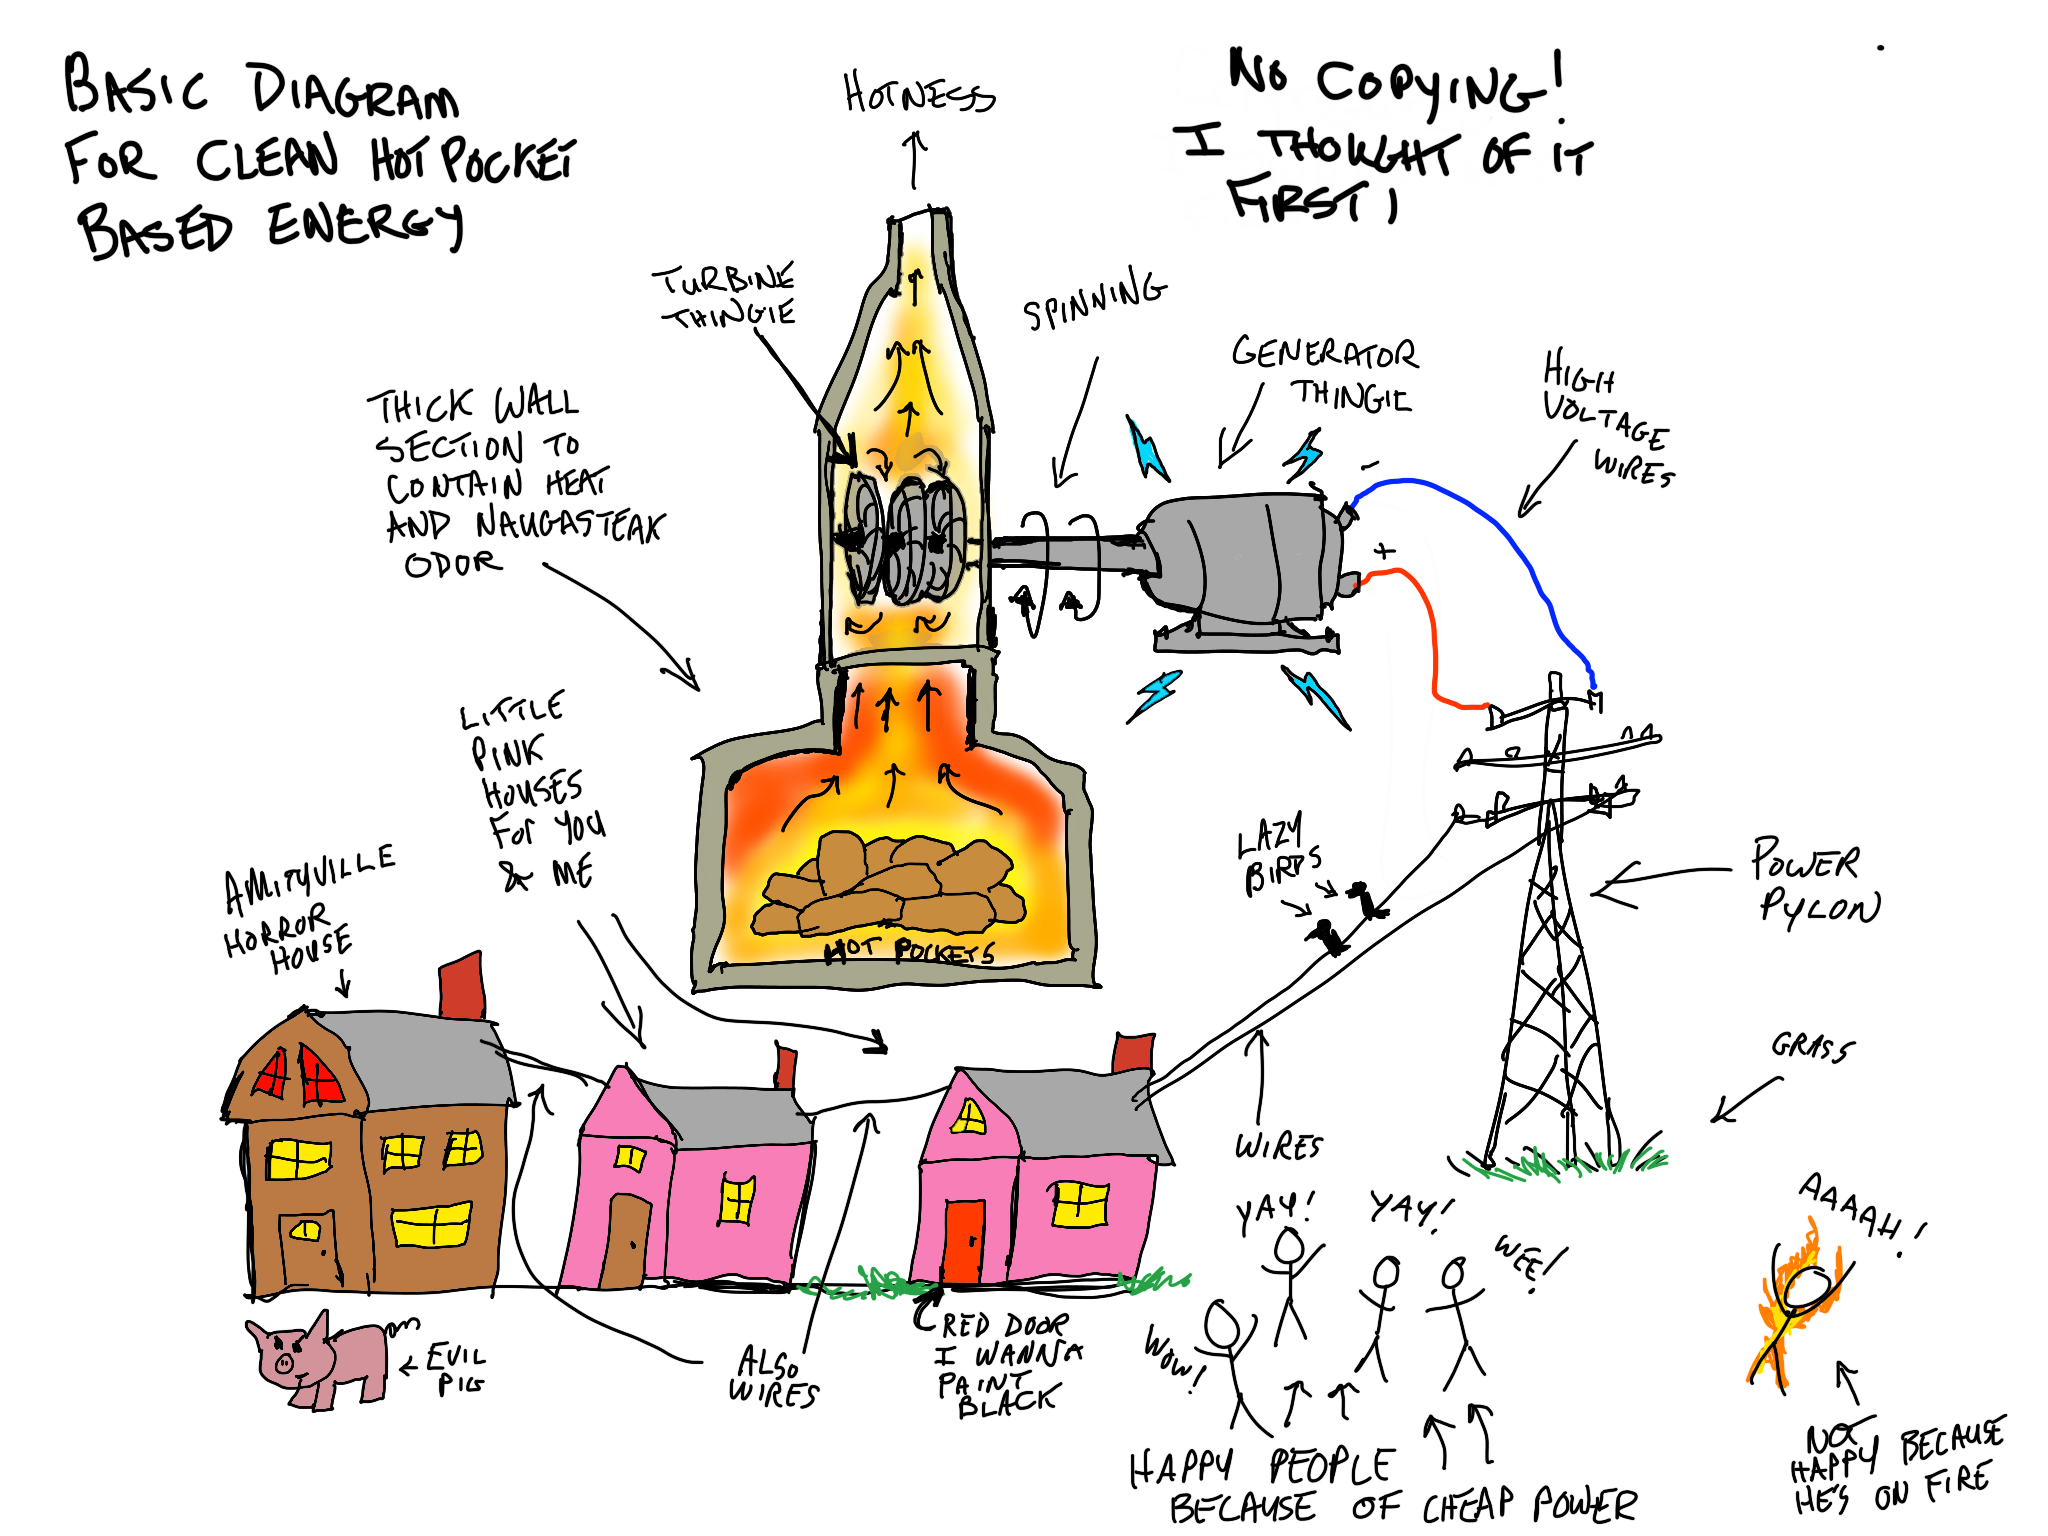 BASIC DIAGRAM
FOR CLEAN HOT POCKET
BASED ENERGY
HOTNESS
NO COPYING!
I THOUGHT OF IT
FIRST!
TURBINE
THINGIE
SPINNING
GENERATOR
THINGIE
HIGH
VOLTAGE
WIRES
THICK WALL
SECTION TO
CONTAIN HEAT
AND NAUGASTEAK
ODOR
-
+
LITTLE
PINK
HOUSES
FOR YOU
& ME
AMITYVILLE
HORROR
HOUSE
HOT POCKETS
LAZY
BIRDS
POWER
PYLON
GRASS
WIRES
YAY!
YAY!
WEE!
WOW!
AAAAH!
EVIL
PIG
ALSO
WIRES
RED DOOR
I WANNA
PAINT
BLACK
HAPPY PEOPLE
BECAUSE OF CHEAP POWER
NOT
HAPPY BECAUSE
HE'S ON FIRE